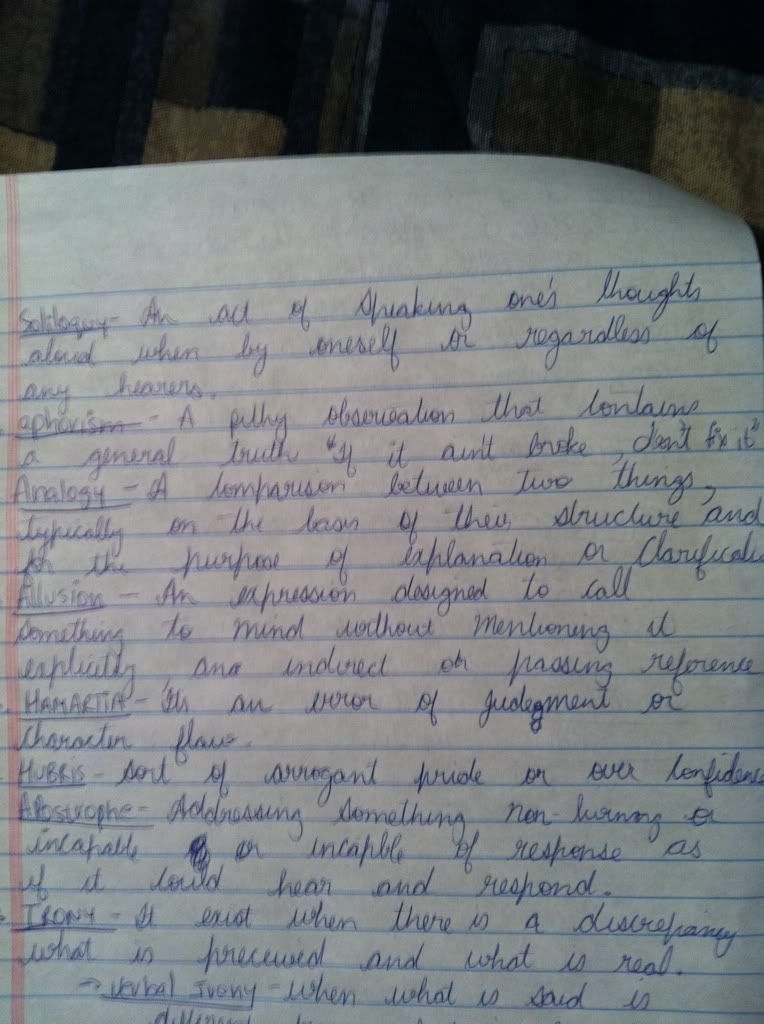 Soliloquy - An act of speaking one's thoughts
aloud when by oneself or regardless of
any hearers.
aphorism - A pithy observation that contains
a general truth "If it ain't broke, don't fix it"
Analogy - A comparison between two things,
typically on the basis of their structure and
for the purpose of explanation or Clarificati
Allusion - An expression designed to call
something to mind without mentioning it
explicitly, ana indirect or passing reference
HAMARTIA - Its an error of judegment or
character flaw.
HUBRIS - sort of arrogant pride or over confidence
Apostrophe - Addressing something non- or
incapable or incapble of response as
if it could hear and respond.
IRONY - It exist when there is a discrepancy
what is preceived and what is real.
→ Verbal Irony - when what is said is